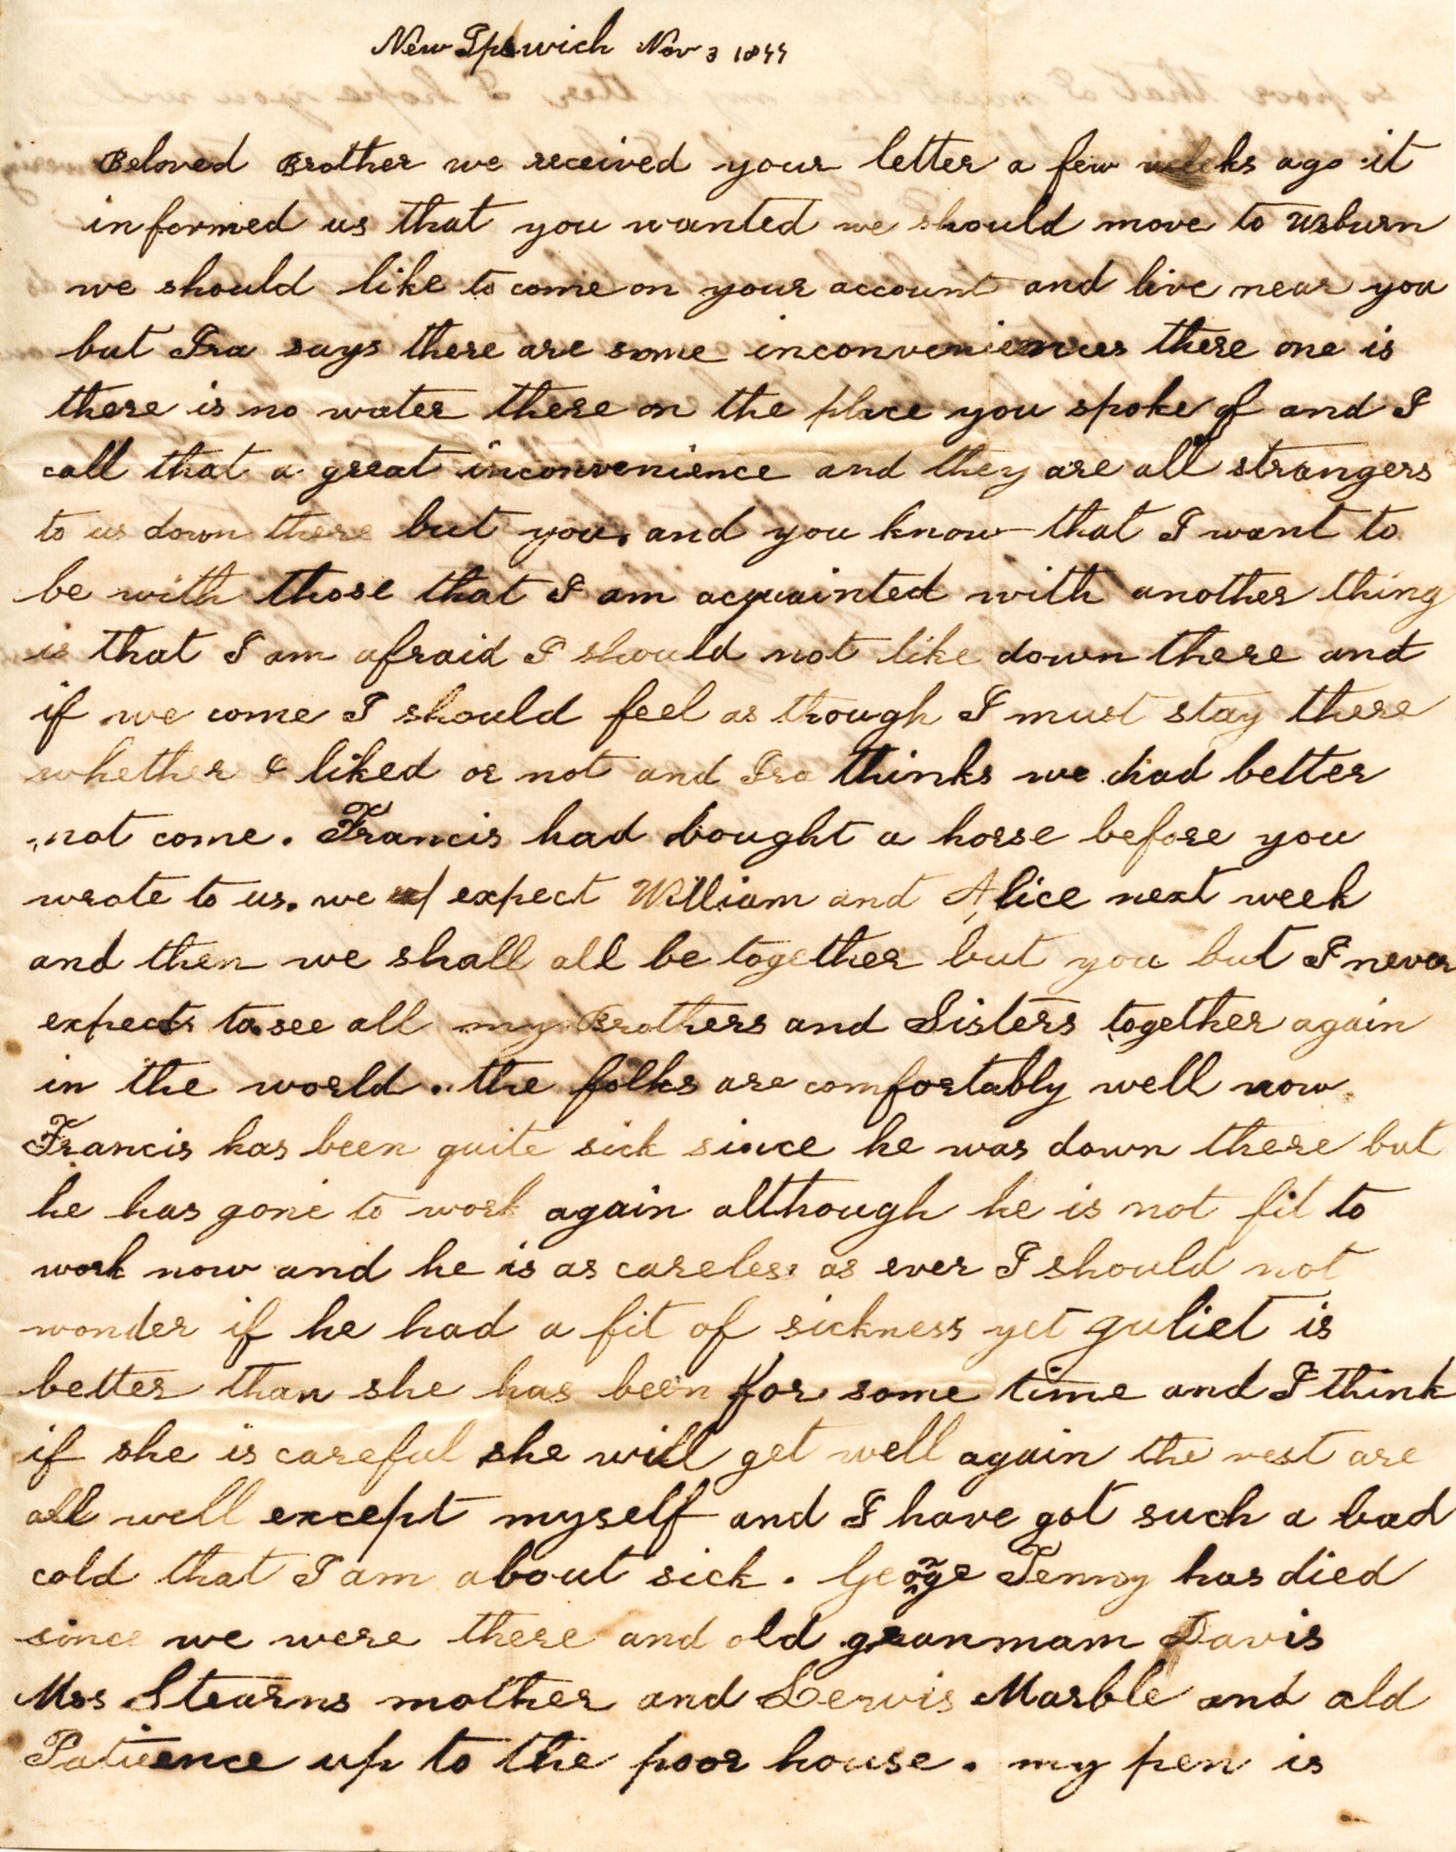 New Ipswich Nov 3 1844
Beloved Brother we received your letter a few weeks ago it
informed us that you wanted we should move to Woburn
we should like to come on your account and live near you
but Ira says there are some inconveniences there one is
there is no water there on the place you spoke of and I
call that a great inconvenience and they are all strangers
to us down there but you. and you know that I want to
be with those that I am acquainted with another thing
is that I am afraid I should not like down there and
if we come I should feel as though I must stay there
whether I liked or not and Ira thinks we had better
not come. Francis had bought a horse before you
wrote to us. we expect William and Alice next week
and then we shall all be together but you but I never
expects to see all my Brothers and Sisters together again
in the world. the folks are comfortably well now
Francis has been quite sick since he was down there but
he has gone to work again although he is not fit to
work now and he is as careless as ever I should not
wonder if he had a fit of sickness yet guliet is
better than she has been for some time and I think
if she is careful she will get well again the rest are
all well except myself and I have got such a bad
cold that I am about sick. George Tenny has died
since we were there and old granmam Davis
Mrs Stearns mother and Lewis Marble and old
Patience up to the poor house. my pen is